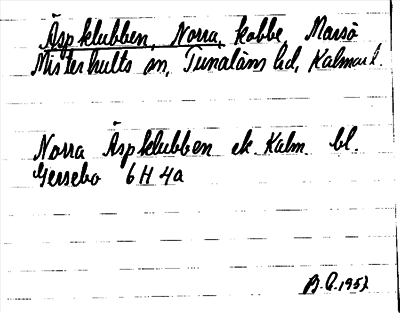 Äspklubben, Norra, kobbe, Marsö
Misterhults sn, Tunaläns hd, Kalmar l.
Norra Äspklubben ek. Kalm. bl.
Gersebo 6H 4a
B.G. 1957